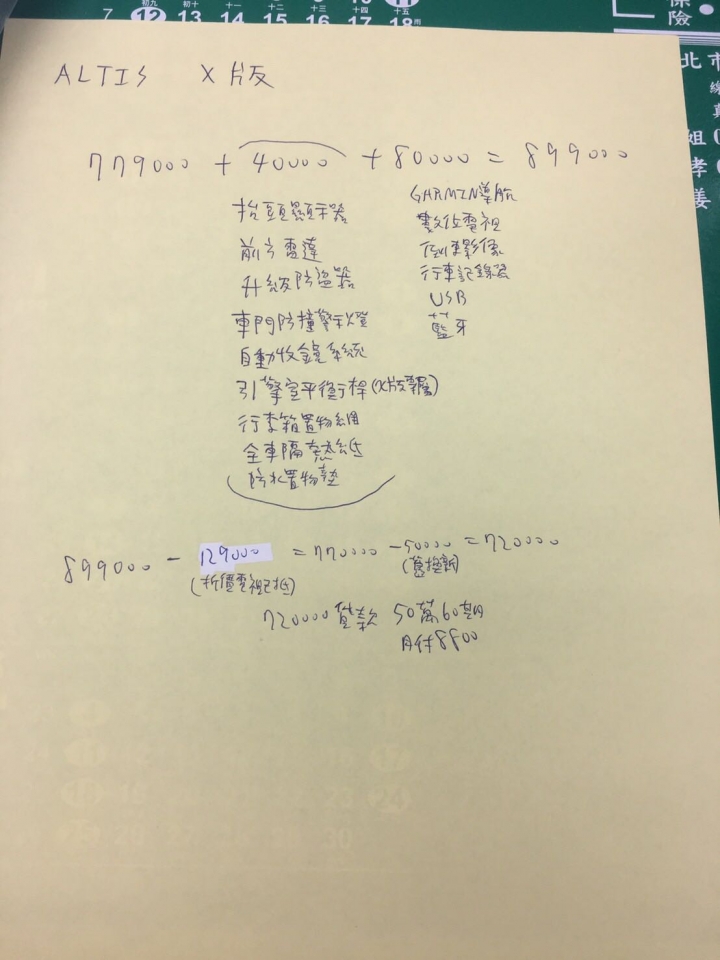 初九 初十 十一 十二 十三 十四 十五
7 12 13 14 15 16 17 18
保險
北市
姐(
孝(
姜
ALTIS X版
779000 + 40000 + 80000 = 899000
抬頭顯示器
前方雷達
升級防盜器
車門防撞警示燈
自動收鏡系統
引擎室平衡桿(X版專屬)
行李箱置物網
全車隔熱紙
防水置物墊
GARMIN導航
數位電視
倒車影像
行車記錄器
USB
藍牙
899000 - 129000 = 770000 - 50000 = 720000
(折價電視已折) (舊換新)
720000 貸款 50萬60期
月付8800